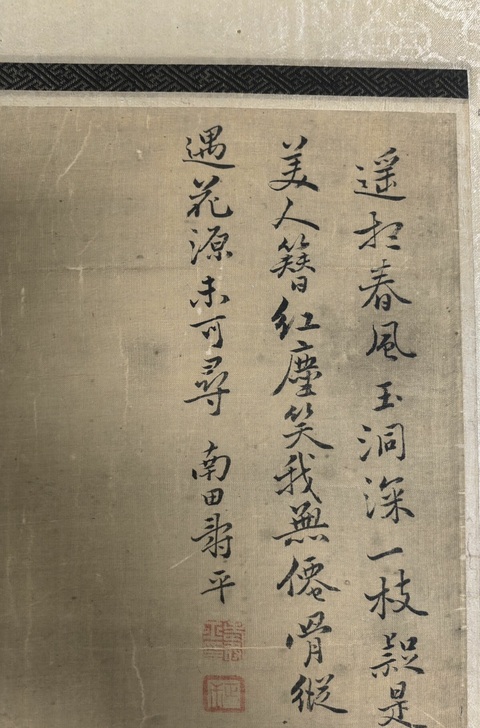 遥想春風玉洞深一枝疑是
美人簪紅塵笑我無僊骨縱
遇花源未可尋 南田壽平